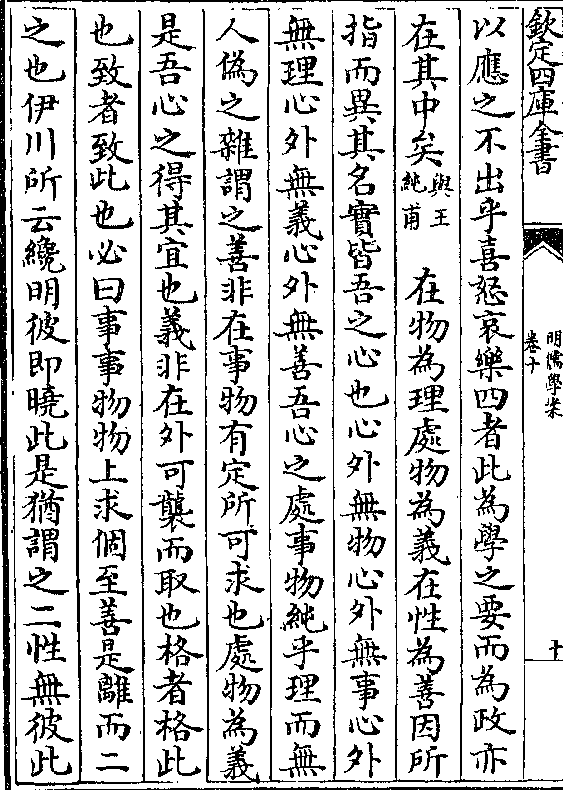 欽定四庫全書
明儒學案
卷十
十
以應之不出乎喜怒哀樂四者此為學之要而為政亦
在其中矣與王純甫 在物為理處物為義在性為善因所
指而異其名實皆吾之心也心外無物心外無事心外
無理心外無義心外無善吾心之處事物純乎理而無
人偽之雜謂之善非在事物有定所可求也處物為義
是吾心之得其宜也義非在外可襲而取也格者格此
也致者致此也必曰事事物物上求個至善是離而二
之也伊川所云纔明彼即曉此是猶謂之二性無彼此